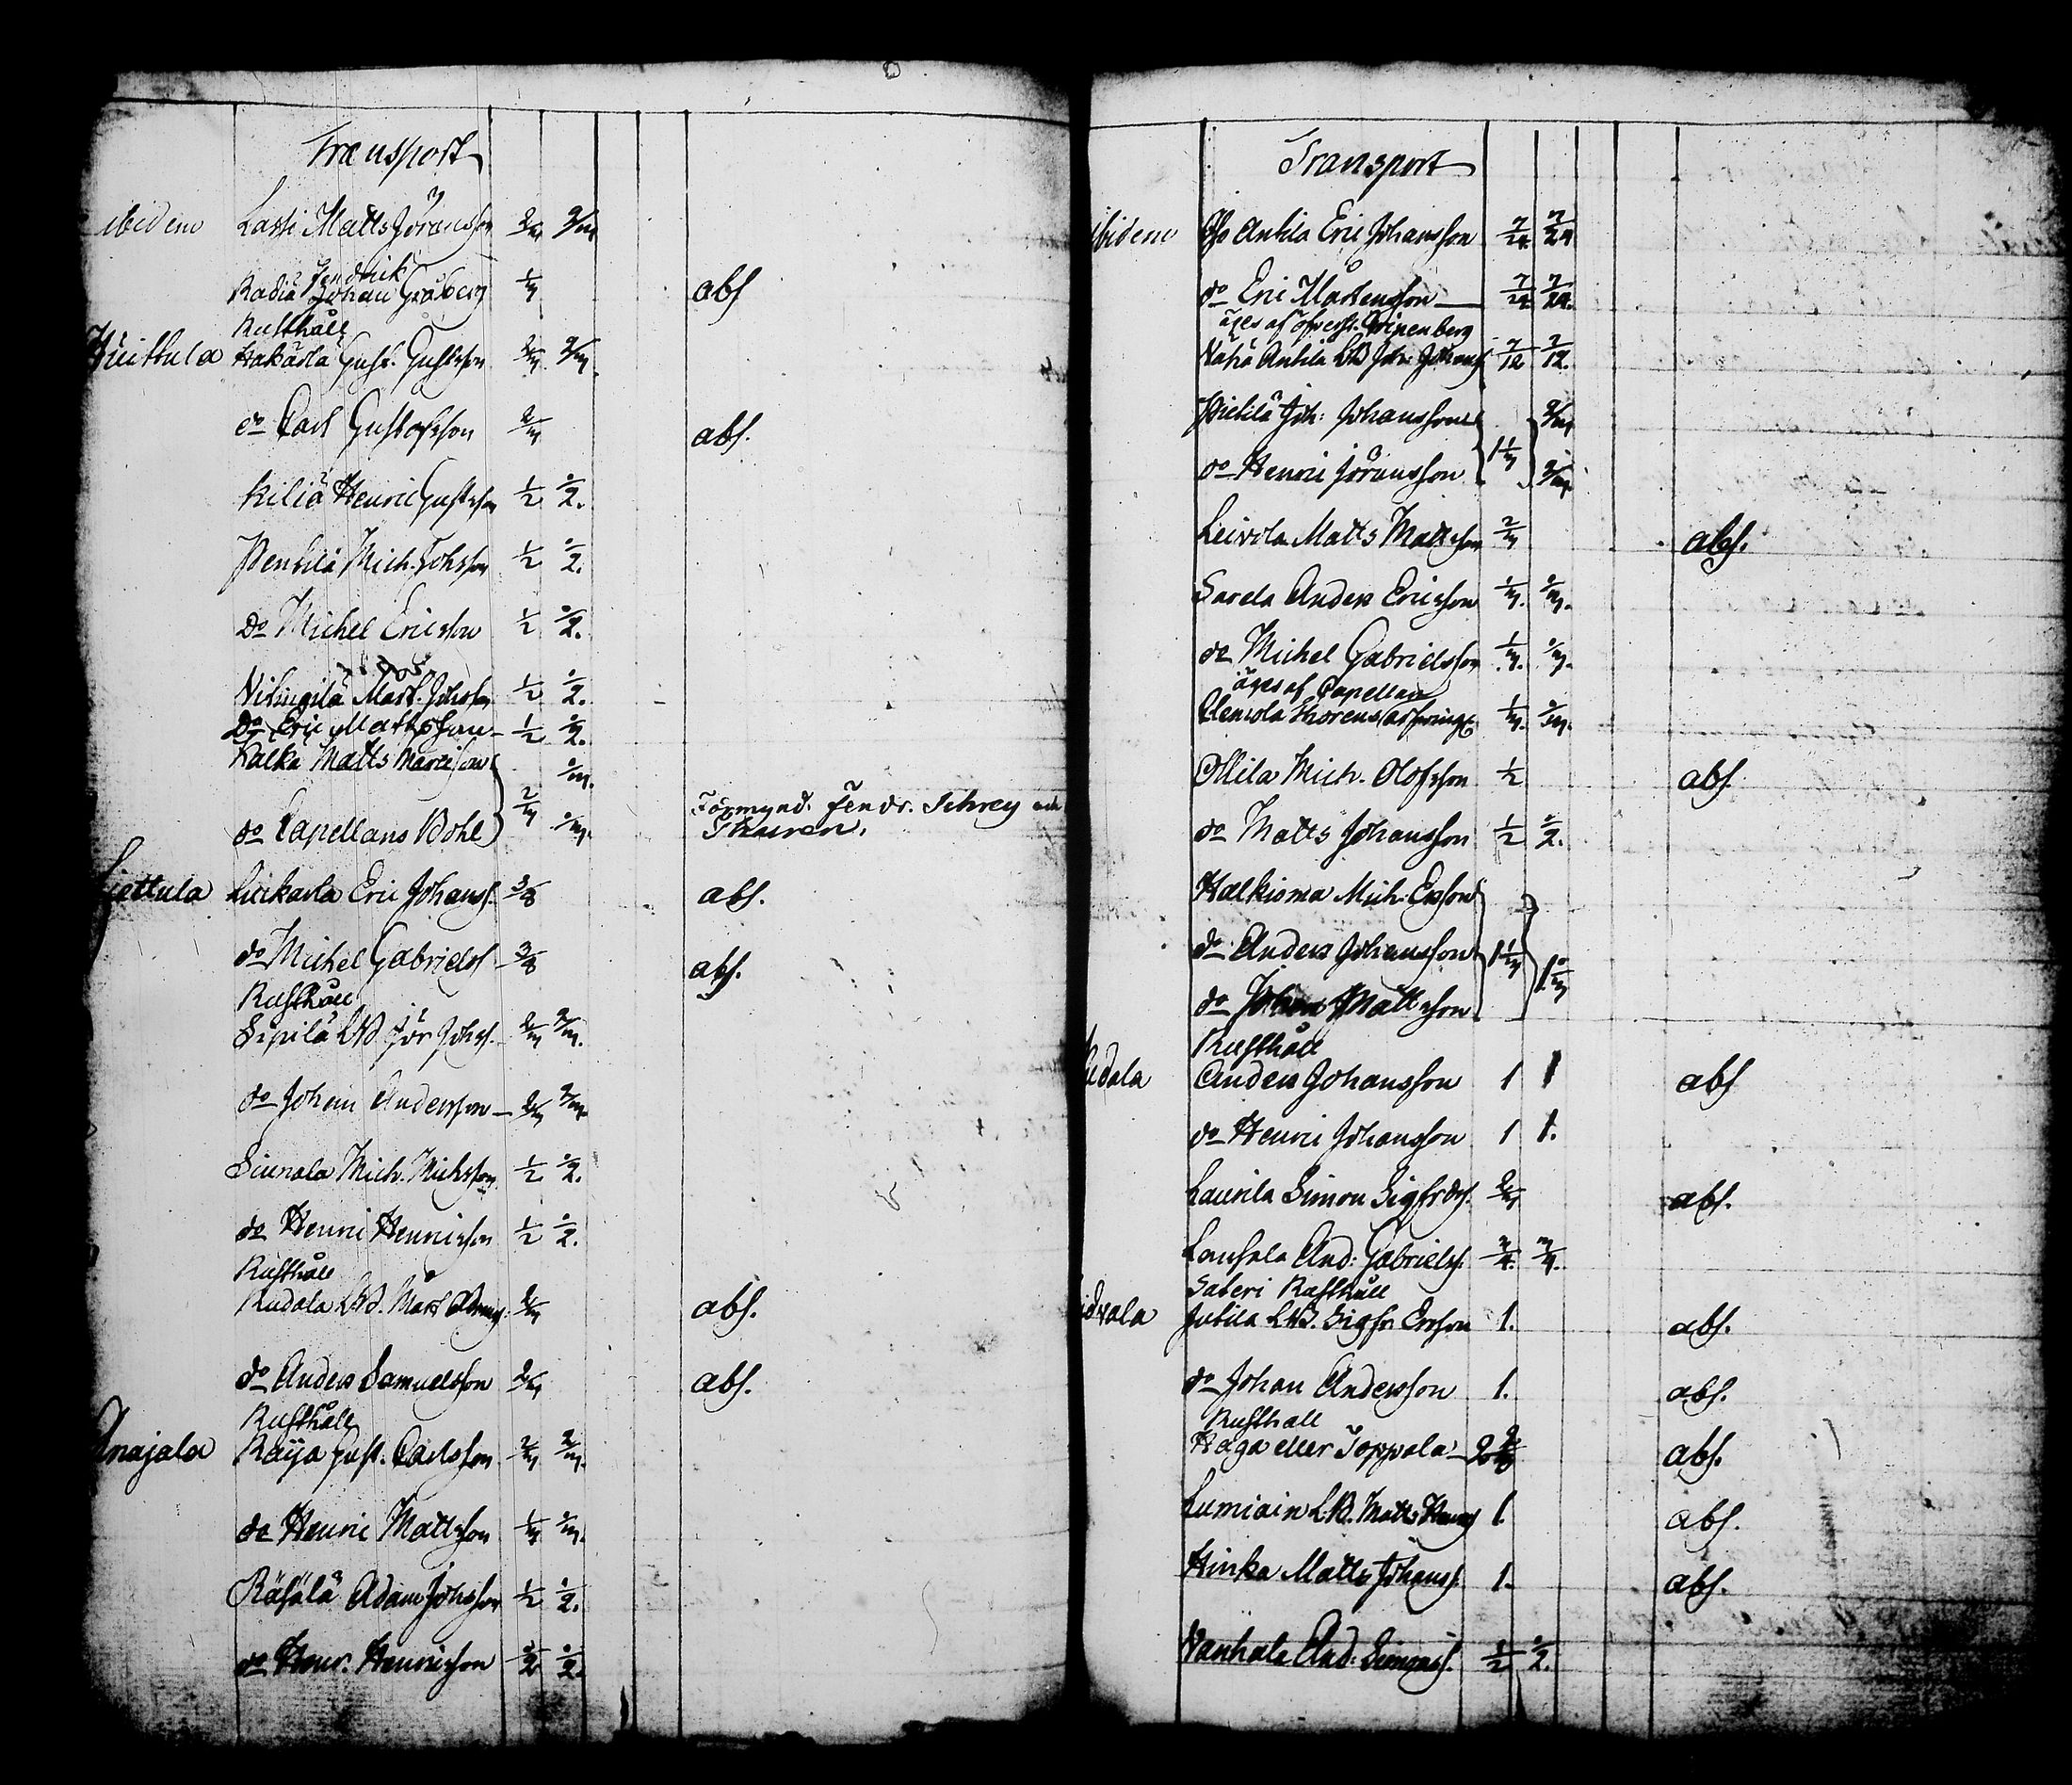 Transport
ibidem Lassi Matts Jöransson 2/3 2/3
Hendrick
Radiä Johan Gråberg 1/3 abs
Rusthåll
Hakärla Gust. Gustsson 2/3 2/3
do Carl Gustafsson 2/3 abs.
Kiliä Henric Gustsson 1/2 1/2.
Penkilä Mich. Johsson 1/2 1/2.
Do Michel Ericsson 1/2 1/2.
Mårt. Johsson 1/2 1/2.
Do Eric Mattsson 1/2 1/2.
Kalka Matts 1/3.
do Capellans Bohl 2/3 1/3. Förmynd. Fendr. Schrey och
Thuren.
Liettula Luckarla Eric Johanss. 3/8 abs.
do Michel Gabrielss 3/8 abs.
Rusthåll
Sipilä LB. Jör Johss. 2/3 2/3.
do Johan Andersson 2/3 2/3
Siurala Mich. Michsson 1/2 1/2.
do Henric Henricsson 1/2 1/2.
Rusthåll
Rudala LB. Mårt 2/3 abs.
do Anders Samuelsson 2/3 abs.
Rusthåll
Anajala Raija Gust. Carlsson 2/3 2/3.
do Henric Mattsson 1/3 1/3.
Räfälä Adam Johsson 1/2 1/2.
do Henr. Henricsson 1/2 1/2.
Transport
ibidem Antila Eric Johansson 7/24 7/24
do Eric Mårtensson 7/24 7/24.
äges af öfverst. Gripenberg
Antila LB Joh: Johanss 7/12 7/12.
Pietilä Joh: Johansson 2/3
do Henric Jöransson 1 1/3 2/3
Leivola Matts Mattsson 2/3 abs.
Sarela Anders Ericsson 1/3. 1/3.
do Michel Gabrielsson 1/3. 1/3.
äges af Capellan
Clemola Thorens 1/3. 1/3.
Ollila Mich. Olofsson 1/2 abs.
do Matts Johansson 1/2 1/2.
Halkioma Mich. Ersson
do Anders Johansson 1 1/3 1 1/3
do Johan Mattsson
Rusthåll
udala Anders Johansson 1 1 abs
do Henric Johansson 1 1.
Laurila Simon Sigfrds. 2/3 abs.
Lansala And: Gabrielss. 3/4. 3/4.
Säteri Rusthåll
idvala Jutila LB. Sigfr. Ersson 1. abs.
do Johan Andersson 1. abs.
Rusthåll
Haga eller Toppola 2 2/3 abs.
Lumiain LB. Matts 1. abs.
Hinka Matts Johanss. 1. abs.
Vanhala And. Simonss. 1/2 1/2.